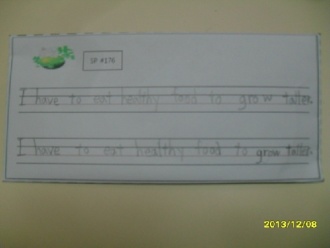 SP #178
I have to eat healthy food to grow taller.
I have to eat healthy food to grow taller.
2013/12/08